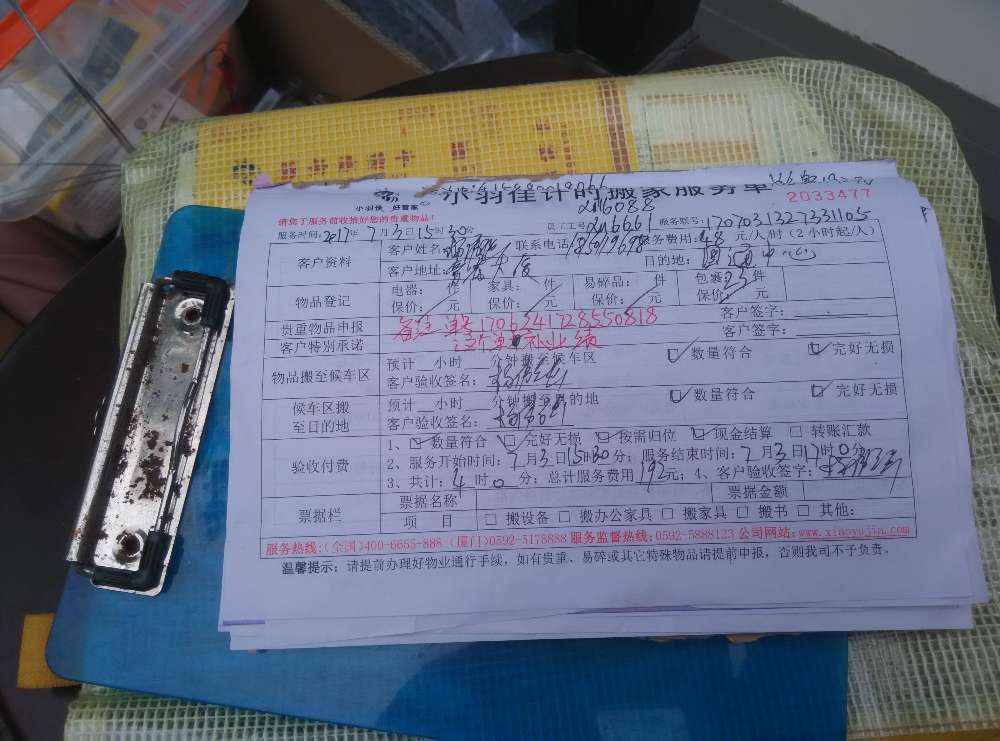 小羽佳计时搬家服务单
小羽佳 好管家
XM6088
2033477
请您于服务前收拾好您的贵重物品!
服务时间:2017年7月3日15时30分 员工工号:XM6661 服务账号:
客户资料 客户姓名: 联系电话: 服务费用:48元/人/时(2小时起/人)
客户地址: 大厦 目的地:
物品登记 电器: 件 家具: 件 易碎品: 件 包裹:35件
保价: 元 保价: 元 保价: 元 保价: 元
贵重物品申报 备注 单号1706341728550818 客户签字:
客户特别承诺 这个单 补业绩 客户签字:
物品搬至候车区 预计 小时 分钟搬至候车区 ☑ 数量符合 ☑ 完好无损
客户验收签名:
候车区搬至目的地 预计 小时 分钟搬至目的地 ☑ 数量符合 ☑ 完好无损
客户验收签名:
验收付费 1、☑ 数量符合 ☑ 完好无损 ☑ 按需归位 ☑ 现金结算 □ 转账汇款
2、服务开始时间:7月3日15时30分;服务结束时间:7月3日17时0分
3、共计:4时0分;总计服务费用192元;4、客户验收签字:
票据栏 票据名称 票据金额
项 目 □ 搬设备 □ 搬办公家具 □ 搬家具 □ 搬书 □ 其他:
服务热线:(全国)400-6655-888 (厦门)0592-5178888 服务监督热线:0592-5888123 公司网站:www.xiaoyujia.com
温馨提示:请提前办理好物业通行手续,如有贵重、易碎或其它特殊物品请提前申报,否则我司不予负责。